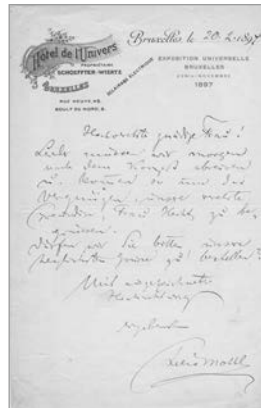 Hôtel de l'Univers
PROPRIÉTAIRE
SCHOEFFTER-WIERTZ
BRUXELLES
ÉCLAIRAGE ÉLECTRIQUE
RUE NEUVE,
BOULT DU NORD, 2.
Bruxelles, le 20. 1897
EXPOSITION UNIVERSELLE
BRUXELLES
AVRIL-NOVEMBRE
1897
Hochverehrte gnädige Frau!
Leider müssen wir morgen
nach dem Konzert abreisen
u. kommen so um das
Vergnügen, unsere
Freundin, Frau zu be-
grüssen.
Dürfen wir Sie bitten unsere
Grüsse zu bestellen?
Mit ausgezeichneter
Hochachtung
ergebenst
Felix Mottl